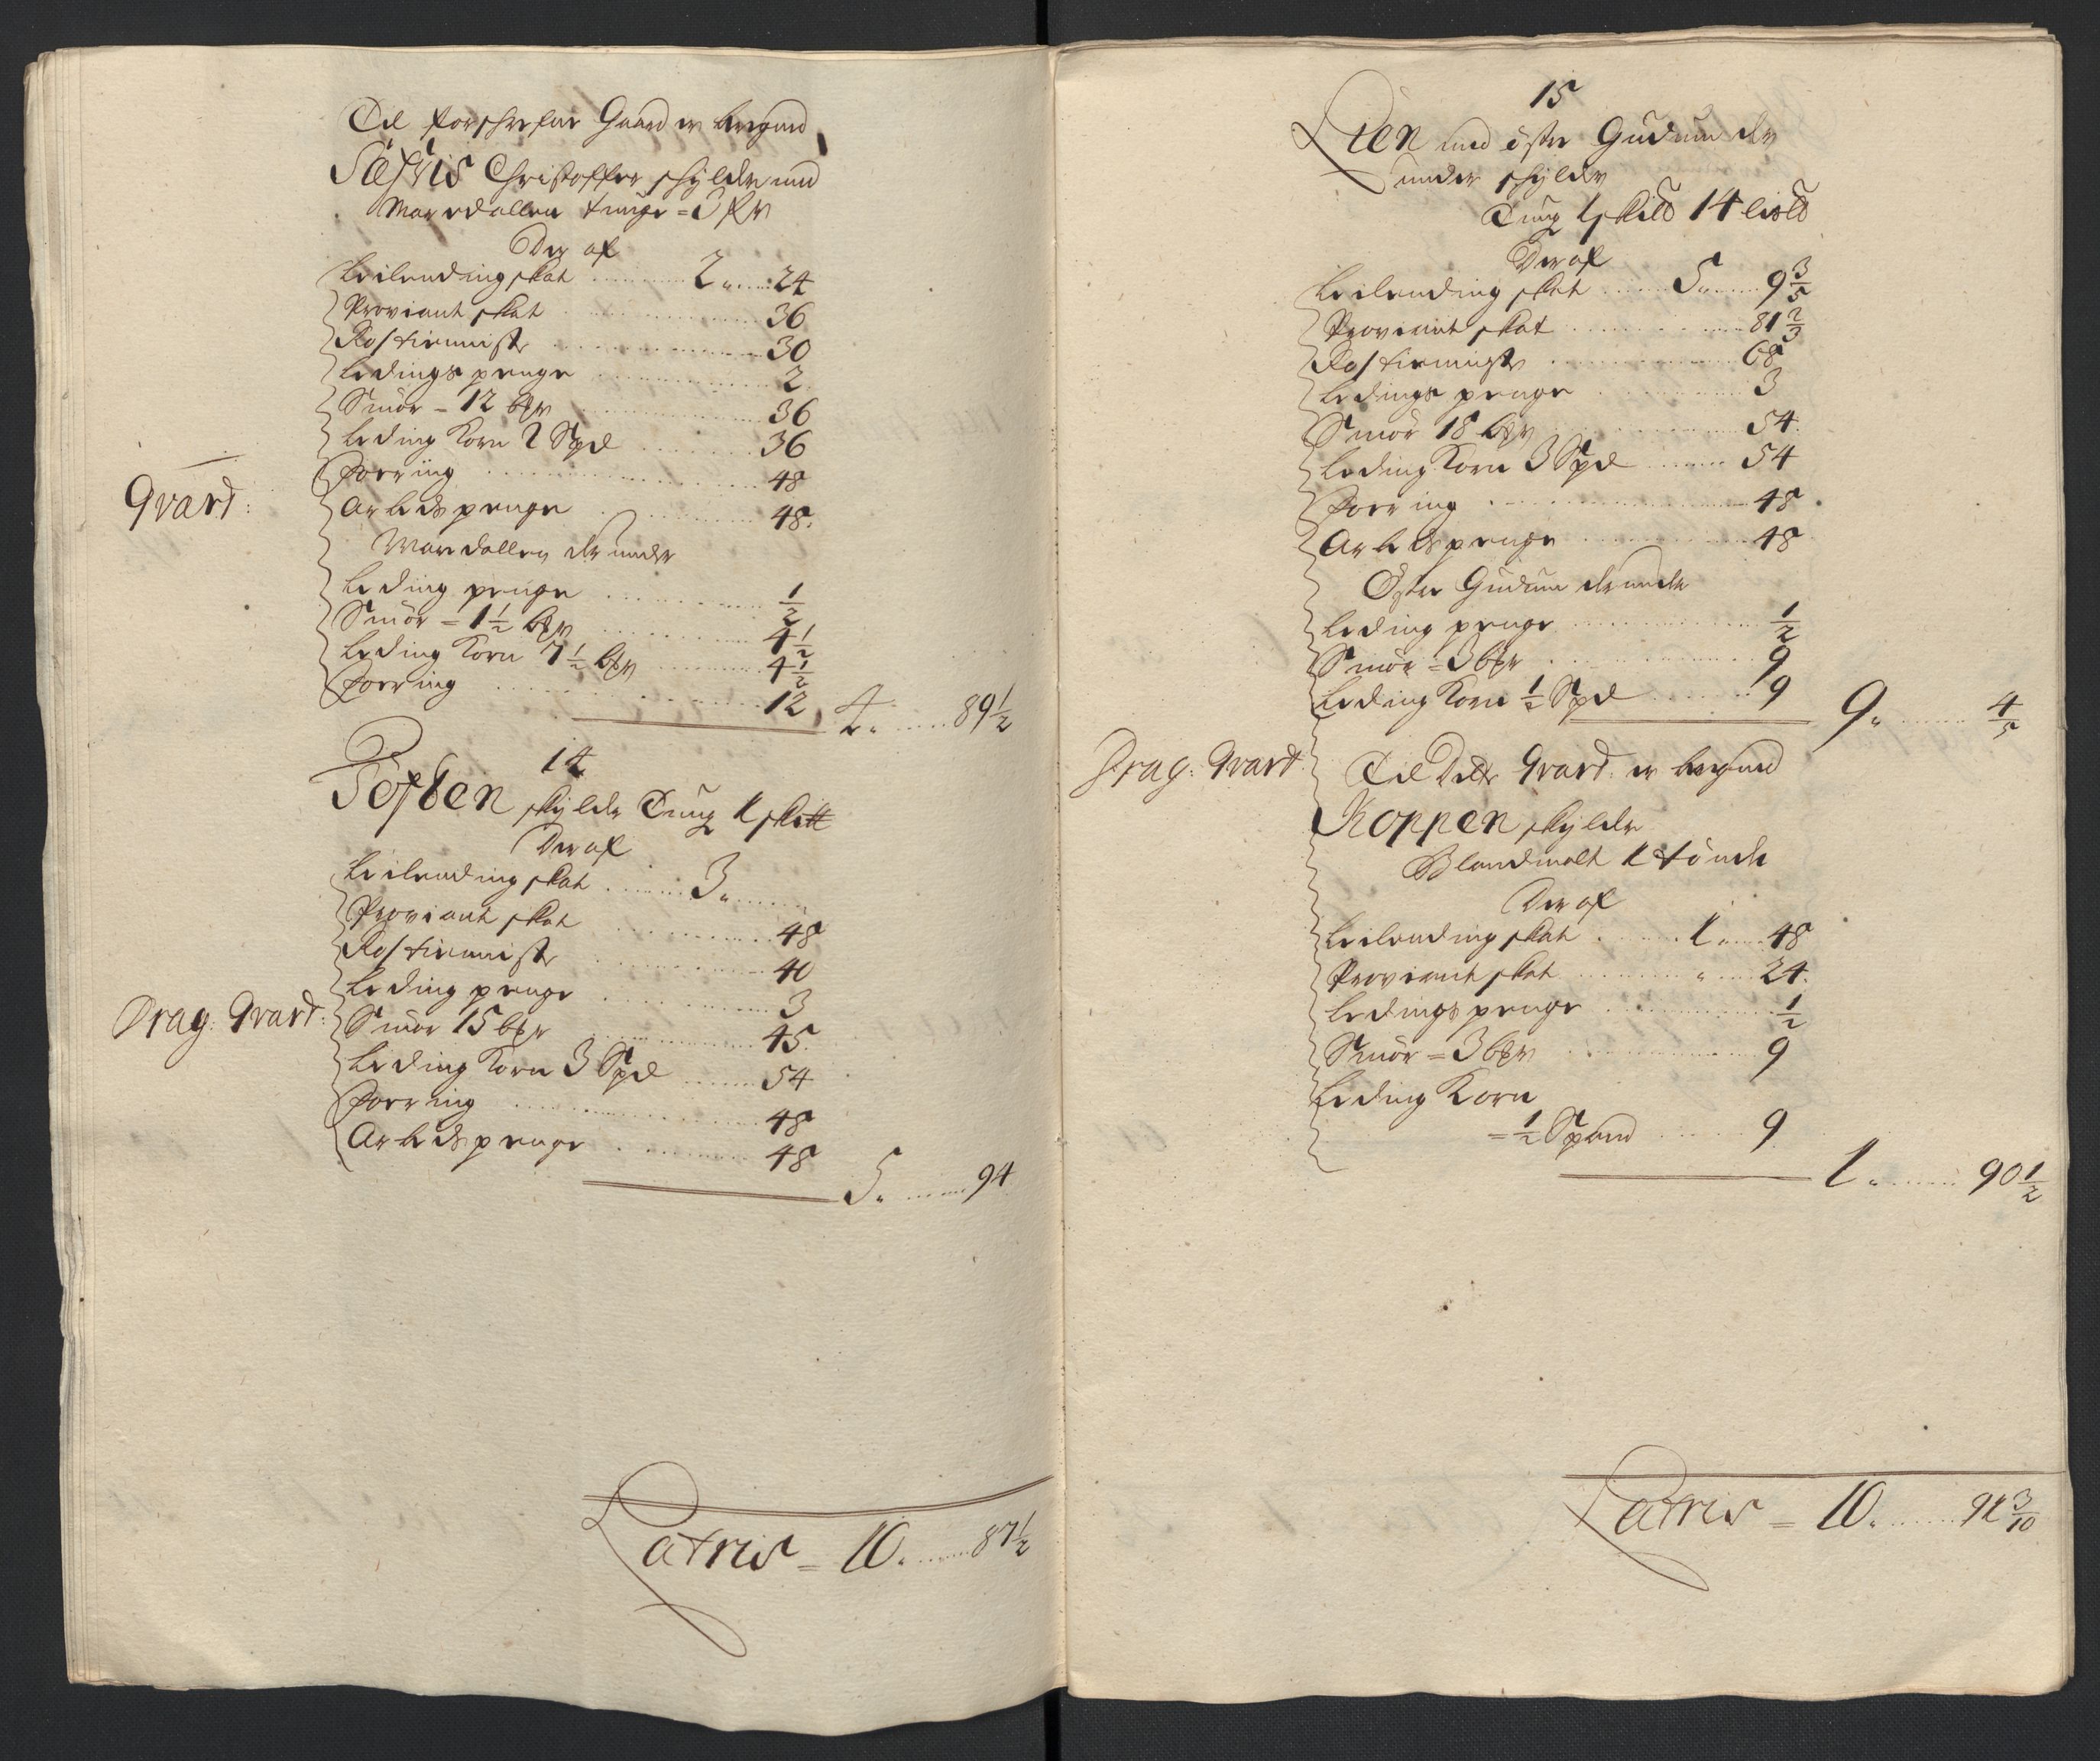 Til forschrefne Gaard er beregnet
Christoffer schylder med
Maredallen tunge = 3 
Der af
Leilending skat ...... 2 „ ... 24
Proviant skat ...... 36
Rostienniste ...... 30
Ledings penge ...... 2
Smör = 12 bpr ...... 36
Leding Korn 2 Spd ...... 36
Foering ...... 48
Qvart:
Arbeds penge ...... 48.
Maredallen der under
Leding penge ...... 1/2
Smör = 1 1/2 bpr ...... 4 1/2
Leding Korn 7 1/2 bpr ...... 4 1/2
Foering ...... 12
4 „ ...... 89 1/2
14
schylder Tung 1 skip
Der af
Leilending skat ...... 3 „ ......
Proviant skat ...... 48
Rostienniste ...... 40
Leding penge ...... 3
Drag: Qvart:
Smör 15 bpr ...... 45
Leding Korn 3 Spd ...... 54
Foering ...... 48
Arbeds penge ...... 48
5 „ ...... 94
Latris = 10 „ ...... 87 1/2
15
Lien med öster Gudum der
under schylder
Tung 1 skip 14 
Der af
Leilending skat ...... 5 „ ...... 9 3/5
Proviant skat ...... 81 2/3
Rostienniste ...... 68
Ledings penge ...... 3
Smör 18 bpr ...... 54.
Leding Korn 3 Spd ...... 54
Foering ...... 48
Arbeds penge ...... 48
Öster Gudum derunder
Leding penge ...... 1/2
Smör = 3 bpr ...... 9
Leding Korn 1/2 Spd ...... 9
9 „ ...... 4/5
Drag: Qvart
Til Dette Qvart: er beregnet
Koppen schylder
Blandmalt 1 tönde
Der af
Leilending skat ...... 1 „ ... 48
Proviant skat ...... „ ... 24.
Ledings penge ...... 1/2
Smör = 3 bpr ...... 9
Leding Korn
= 1/2 Spand ...... 9
1 „ ...... 90 1/2
Latris = 10 „ ...... 91 3/10